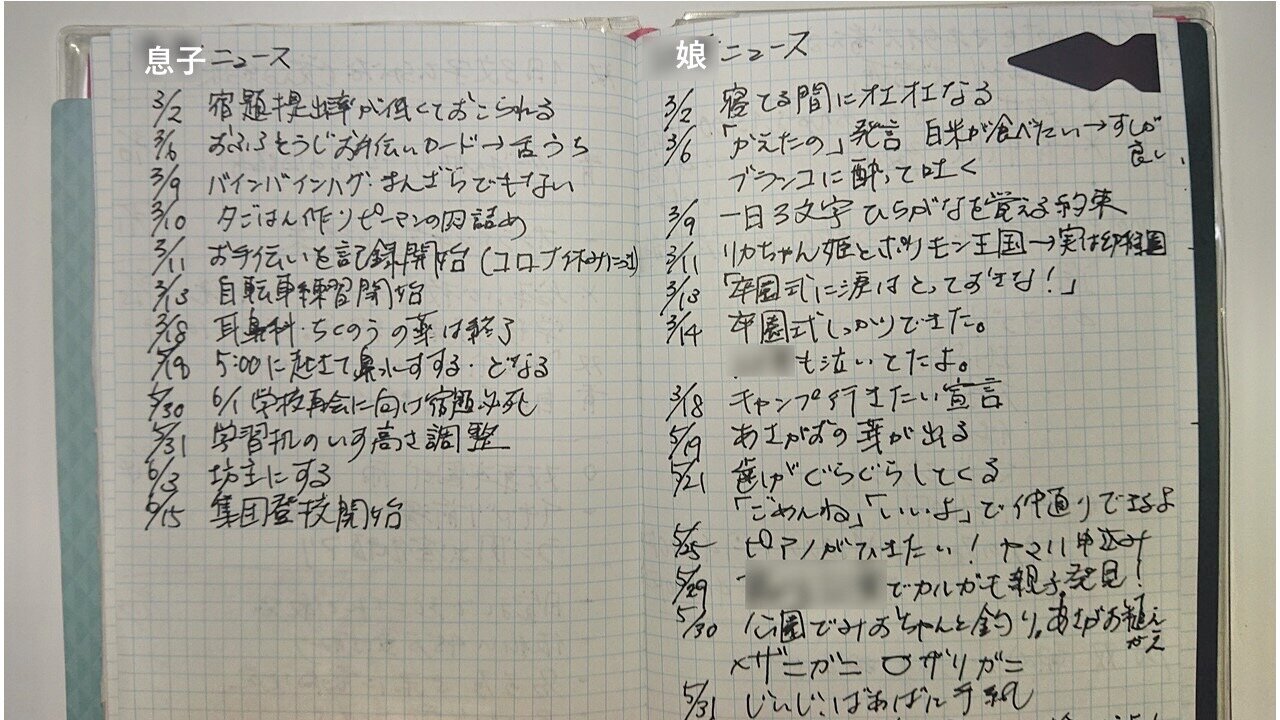 息子ニュース
3/2 宿題提出率が低くておこられる
3/6 おふろそうじお手伝いカード→舌うち
3/9 バインバインハグ・まんざらでもない
3/10 夕ごはん作りピーマンの肉詰め
3/11 お手伝いを記録開始(コロナ休みにつき)
3/13 自転車練習開始
3/18 耳鼻科・ちくのうの薬は終了
5/18 5:00に起きて鼻水すする・どなる
5/30 6/1学校再会に向け宿題必死
5/31 学習机のいす高さ調整
6/3 坊主にする
6/15 集団登校開始
娘ニュース
3/2 寝てる間にオエオエなる
3/6 「かえたの」発言 白米が食べたい→すしが
良い、
ブランコに酔って吐く
3/9 一日3文字 ひらがなを覚える約束
3/11 リカちゃん姫とポリモン王国→実は幼稚園
3/13 「卒園式に涙はとっておきな!」
3/14 卒園式しっかりできた。
も泣いてたよ。
3/18 キャンプ行きたい宣言
5/19 あさがおの芽が出る
5/21 歯がぐらぐらしてくる
「ごめんね」「いいよ」で仲直りできるよ
5/25 ピアノがひきたい! ヤマハ申込み
5/29 でカルガモ親子発見!
5/30 公園でみおちゃんと釣り。あさがお植え
かえ
×ザニガニ ○ザリガニ
5/31 じいじ、ばあばに手紙